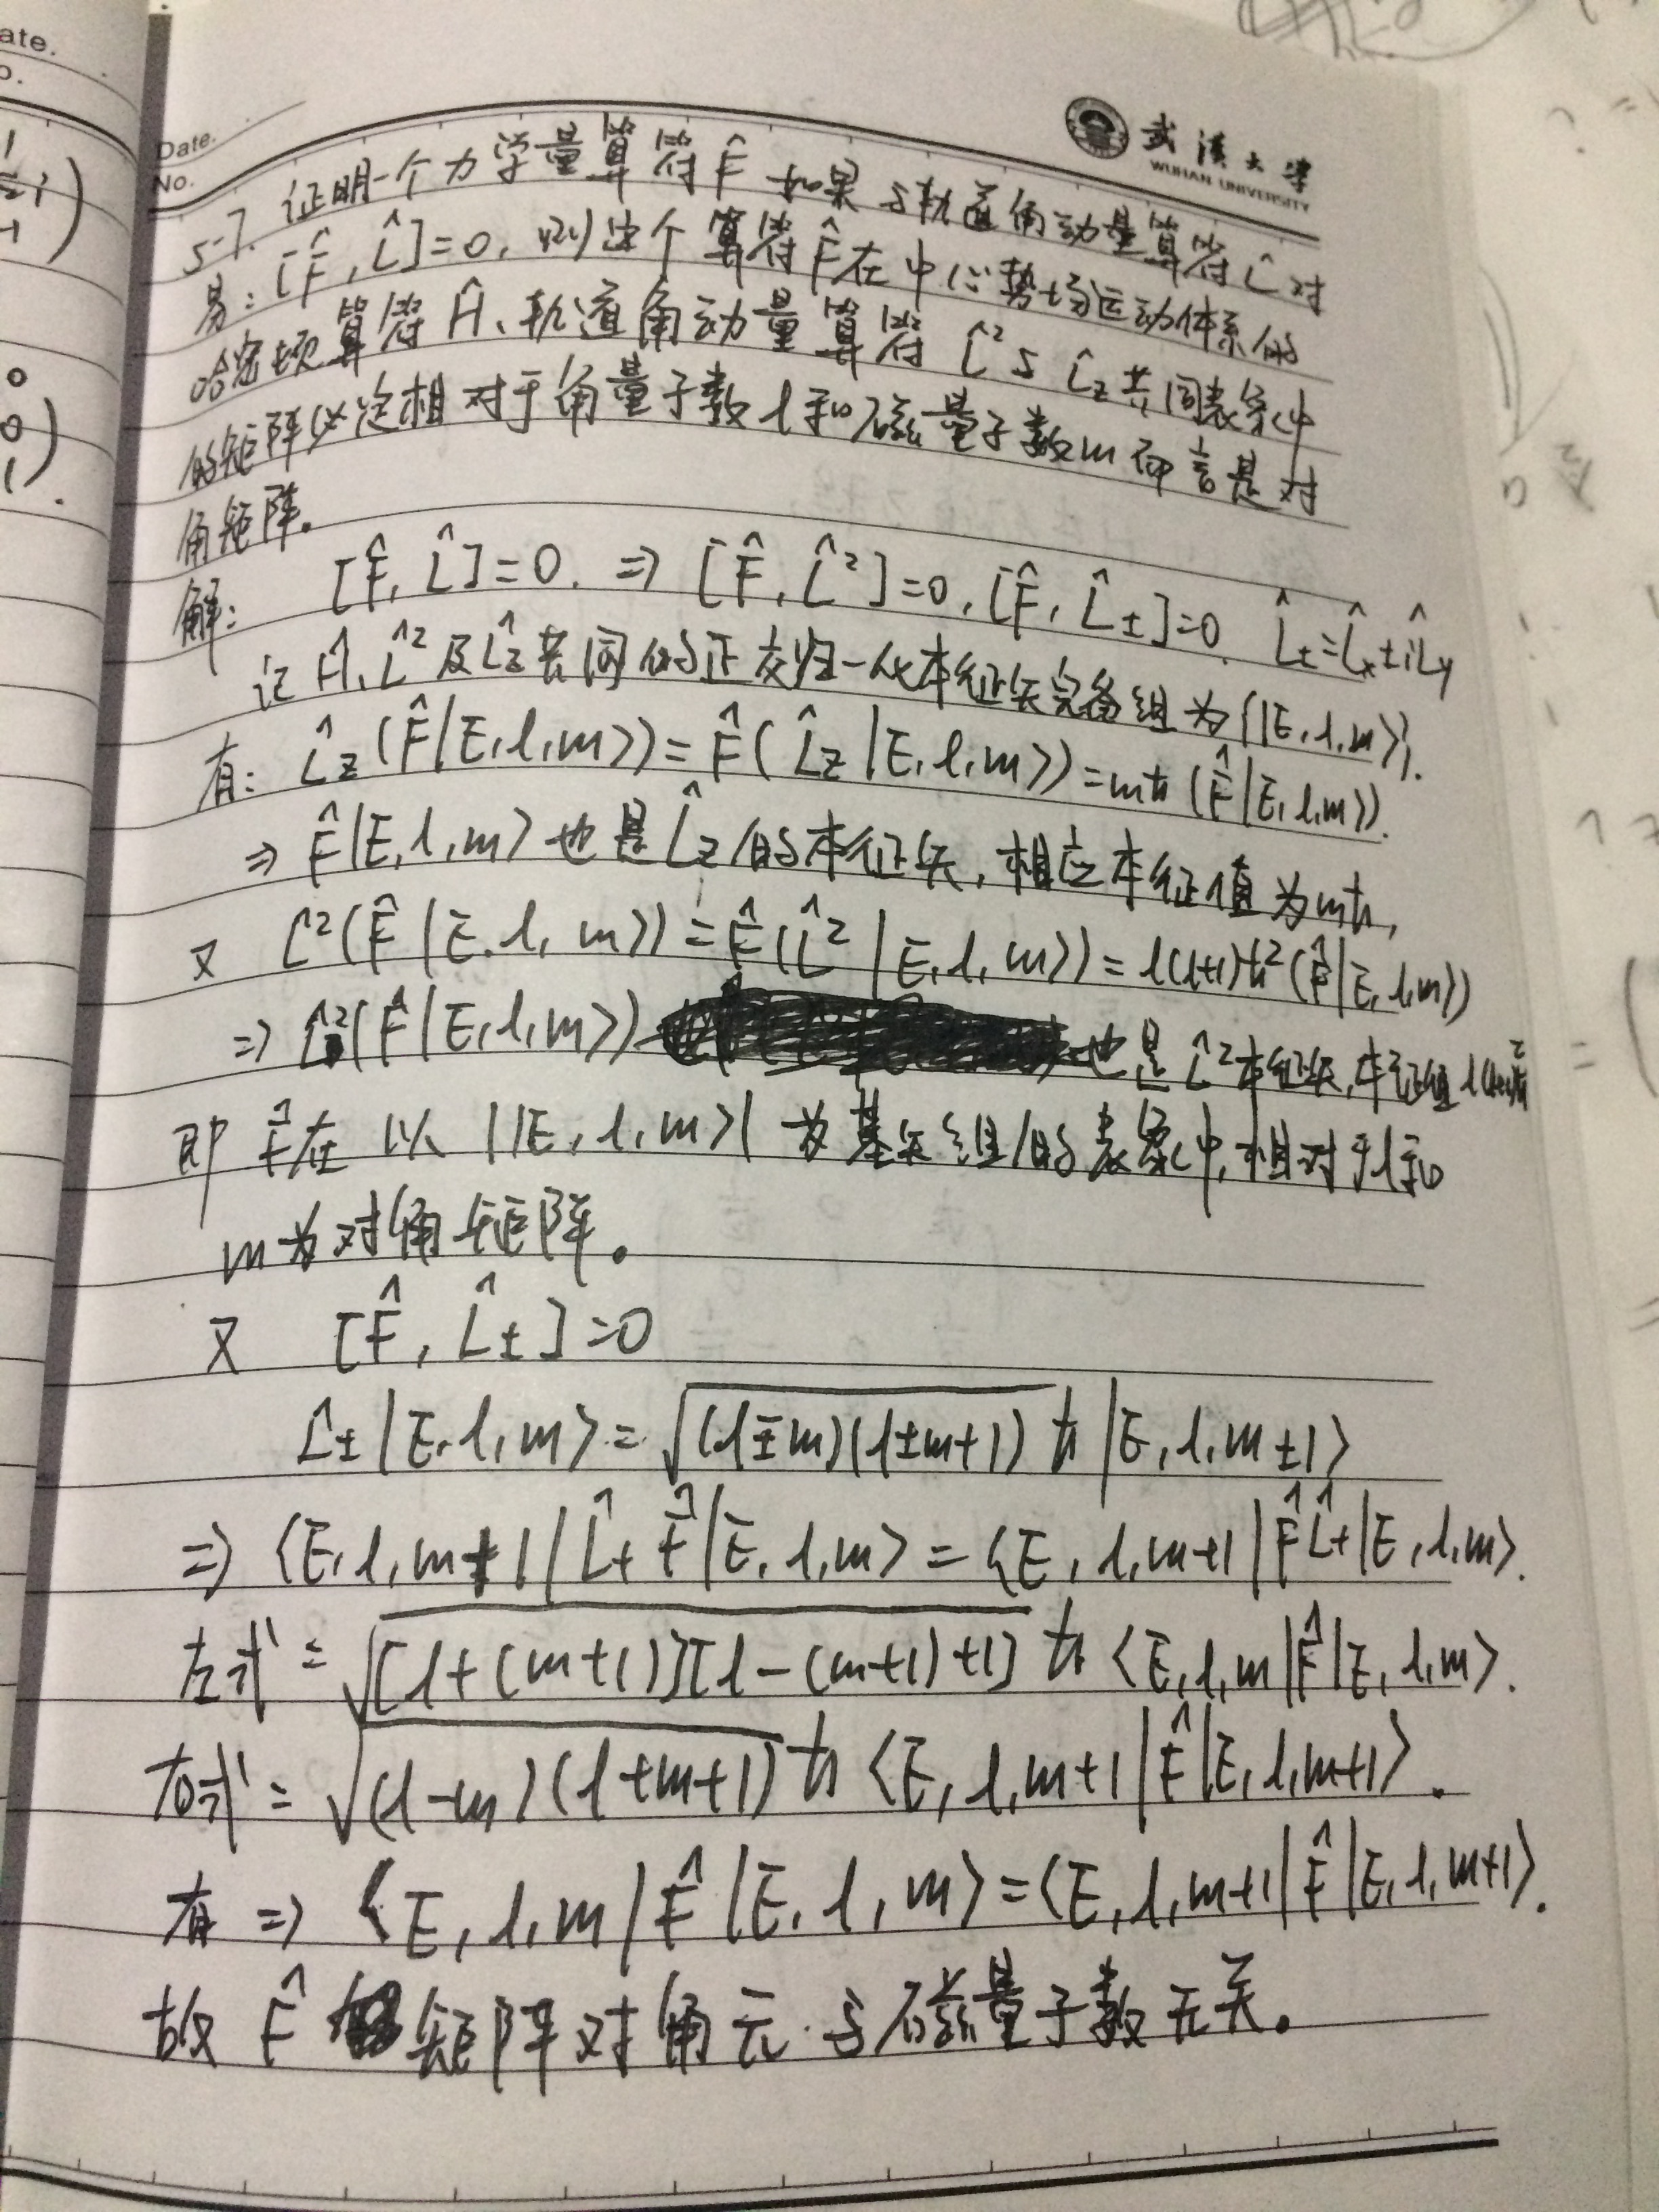 ate.
o.
Date.
No.
武漢大學
WUHAN UNIVERSITY
5-7. 证明一个力学量算符 F̂ 如果与轨道角动量算符 L̂ 对
易: [F̂, L̂]=0, 则这个算符 F̂ 在中心势场运动体系的
哈密顿算符 Ĥ、轨道角动量算符 L̂² 与 L̂z 共同表象中
的矩阵必定相对于角量子数 l 和磁量子数 m 而言是对
角矩阵。
解: [F̂, L̂]=0. ⇒ [F̂, L̂²]=0, [F̂, L̂±]=0. L̂±=L̂x±iL̂y
记 Ĥ, L̂² 及 L̂z 共同的正交归一化本征矢完备组为{|E, l, m⟩}.
有: L̂z (F̂|E, l, m⟩) = F̂ (L̂z |E, l, m⟩) = mħ (F̂|E, l, m⟩).
⇒ F̂|E, l, m⟩ 也是 L̂z 的本征矢, 相应本征值为 mħ,
又 L̂²(F̂|E, l, m⟩) = F̂(L̂²|E, l, m⟩) = l(l+1)ħ²(F̂|E, l, m⟩)
⇒ L̂²(F̂|E, l, m⟩) 也是 L̂² 本征矢, 本征值 l(l+1)ħ²
即 F̂ 在以 {|E, l, m⟩} 为基矢组的表象中, 相对于 l 和
m 为对角矩阵。
又 [F̂, L̂±]=0
L̂±|E, l, m⟩ = √(l∓m)(l±m+1) ħ |E, l, m±1⟩
⇒ ⟨E, l, m+1|L̂+F̂|E, l, m⟩ = ⟨E, l, m+1|F̂L̂+|E, l, m⟩.
左式 = √[l+(m+1)][l-(m+1)+1] ħ ⟨E, l, m|F̂|E, l, m⟩.
右式 = √(l-m)(l+m+1) ħ ⟨E, l, m+1|F̂|E, l, m+1⟩.
有 ⇒ ⟨E, l, m|F̂|E, l, m⟩ = ⟨E, l, m+1|F̂|E, l, m+1⟩.
故 F̂ 矩阵对角元与磁量子数无关。